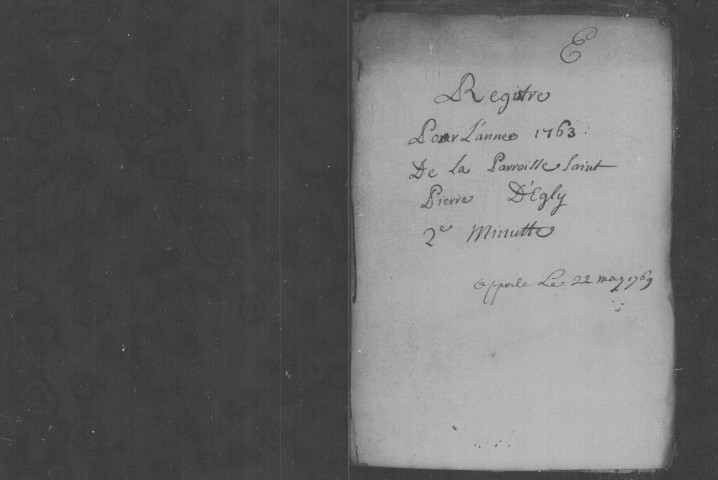 E
Registre
Pour L'annee 1763
De la Parroisse Saint
Pierre D'Egly
2e Minutte
apporté Le 22 may 1769